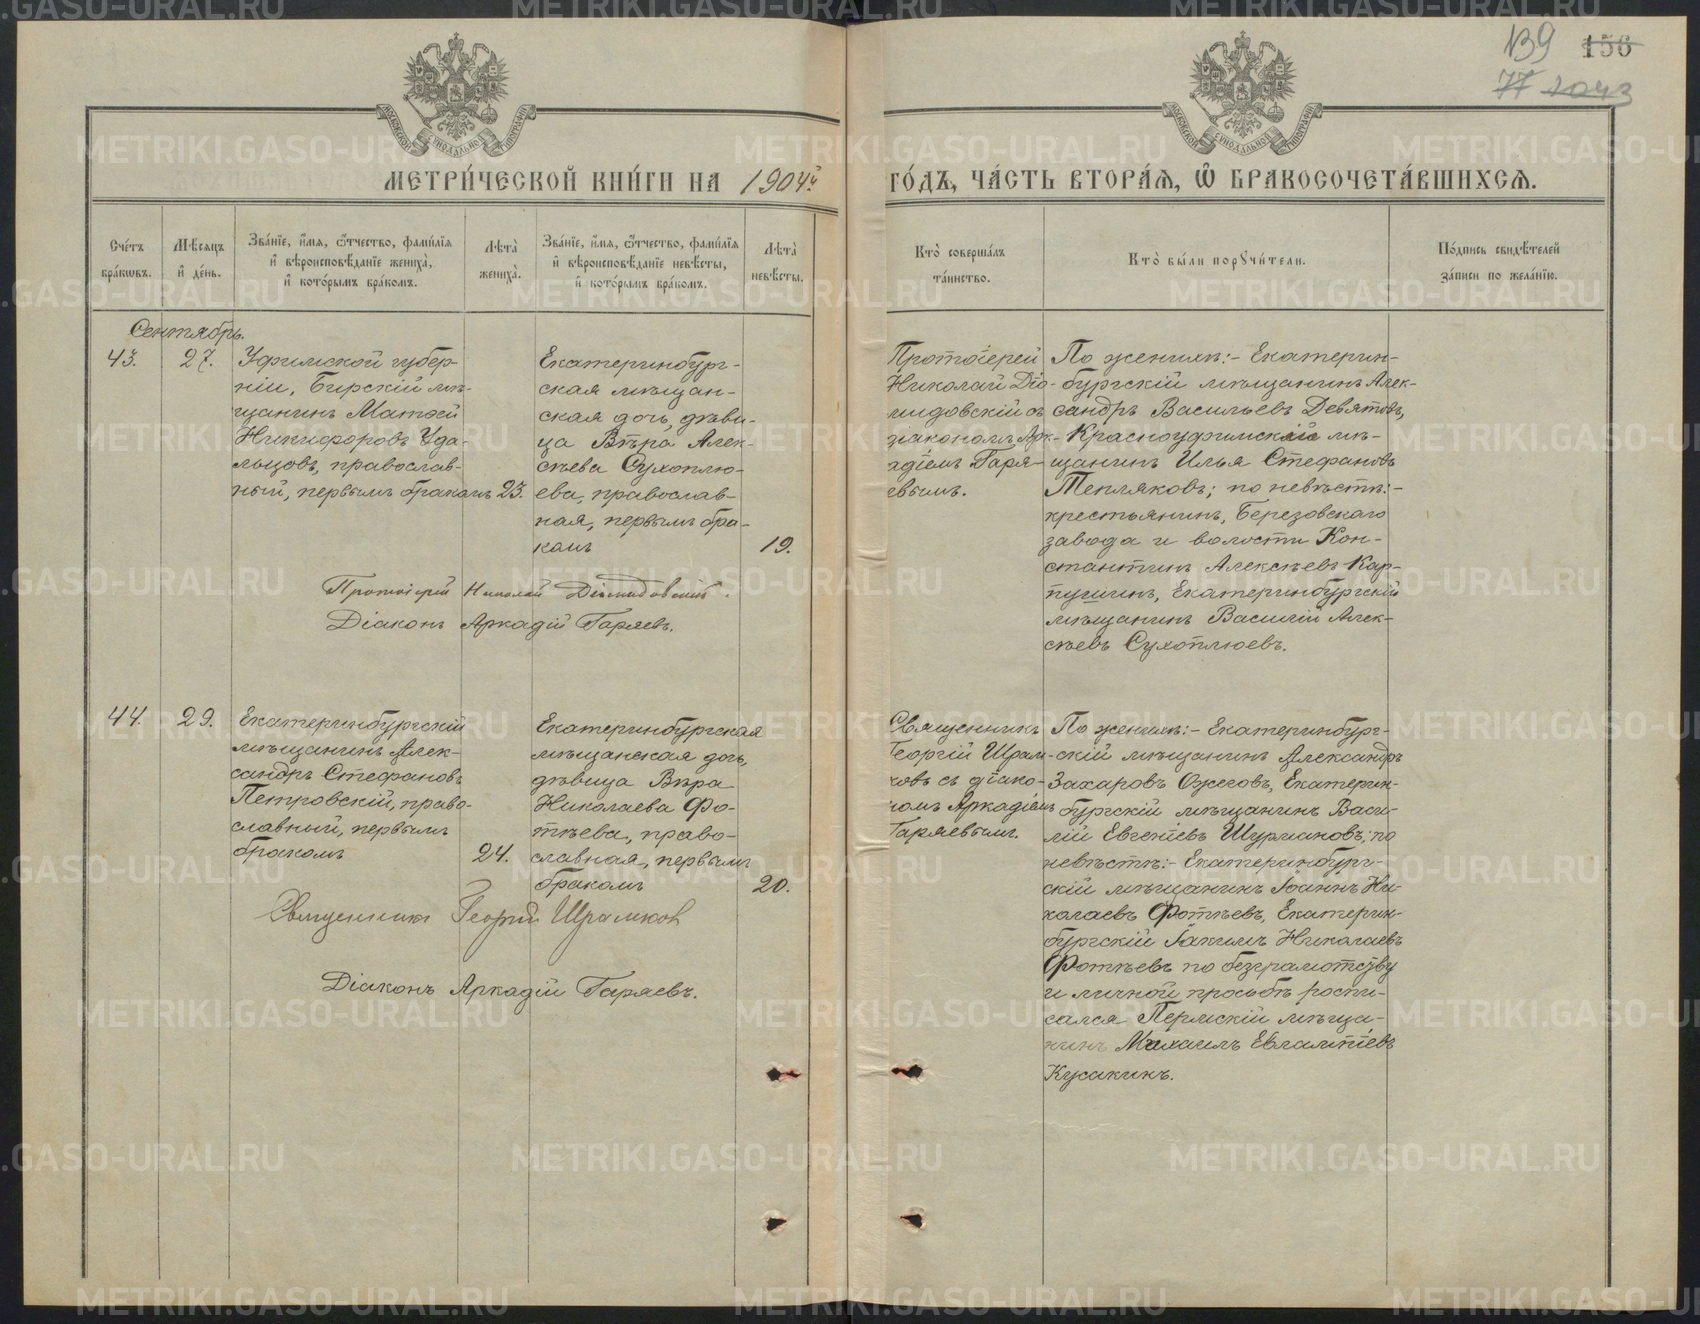 139 156
77 1043
МОСКОВСКОЙ СѴНОДАЛЬНОЙ ТИПОГРАФІИ
МОСКОВСКОЙ СѴНОДАЛЬНОЙ ТИПОГРАФІИ
МЕТРИ́ЧЕСКОЙ КНИ́ГИ НА 1904й ГО́ДЪ, ЧА́СТЬ ВТОРА́Я, Ѡ БРАКОСОЧЕТА́ВШИХСЯ.
Сче́тъ
бра́кѡвъ.
Мѣ́сяцъ
и҆ де́нь.
Зва́нїе, и҆́мя, ѻ҆́тчество, фами́лїя
и҆ вѣроисповѣ́данїе жениха̀,
и҆ кото́рымъ бра́комъ.
Лѣ́та̀
жениха̀.
Зва́нїе, и҆́мя, ѻ҆́тчество, фами́лїя
и҆ вѣроисповѣ́данїе невѣ́сты,
и҆ кото́рымъ бра́комъ.
Лѣ́та̀
невѣ́сты.
Кто̀ соверша́лъ
та́инство.
Кто̀ бы́ли порꙋчи́тели.
По́дпись свидѣ́телей
за́писи по жела́нїю.
Сентябрь.
43.
27.
Уфимской губер-
ніи, Бирскій мѣ-
щанинъ Матѳей
Никифоровъ Уда-
льцовъ, православ-
ный, первымъ бракомъ
23.
Екатеринбург-
ская мѣщан-
ская дочь, дѣви-
ца Вѣра Алек-
сѣева Сухоплю-
ева, православ-
ная, первымъ бра-
комъ
19.
Протоіерей
Николай Діо-
мидовскій съ
діакономъ Арк-
адіемъ Гаря-
евымъ.
По женихѣ:- Екатерин-
бургскій мѣщанинъ Алек-
сандръ Васильевъ Девятовъ,
Красноуфимскій мѣ-
щанинъ Илья Стефановъ
Тепляковъ; по невѣстѣ:-
крестьянинъ, Березовскаго
завода и волости Кон-
стантинъ Алексѣевъ Кар-
пушинъ, Екатеринбургскій
мѣщанинъ Василій Алек-
сѣевъ Сухоплюевъ.
Протоіерей Николай Діомидовскій.
Діаконъ Аркадій Гаряевъ.
44.
29.
Екатеринбургскій
мѣщанинъ Алек-
сандръ Стефановъ
Петровскій, право-
славный, первымъ
бракомъ
24.
Екатеринбургская
мѣщанская дочь,
дѣвица Вѣра
Николаева Фо-
тѣева, право-
славная, первымъ
бракомъ
20.
Священникъ
Георгій Шрам-
ковъ съ діако-
номъ Аркадіемъ
Гаряевымъ.
По женихѣ:- Екатеринбург-
скій мѣщанинъ Александръ
Захаровъ Ожеговъ, Екатерин-
бургскій мѣщанинъ Васи-
лій Евгеніевъ Шурмановъ; по
невѣстѣ:- Екатеринбург-
скій мѣщанинъ Іоаннъ Ни-
колаевъ Фотѣевъ, Екатерин-
бургскій Іакимъ Николаевъ
Фотѣевъ по безграмотству
и личной просьбѣ роспи-
сался Пермскій мѣща-
нинъ Михаилъ Евлампіевъ
Кусакинъ.
Священникъ Георгій Шрамков
Діаконъ Аркадій Гаряевъ.
METRIKI.GASO-URAL.RU